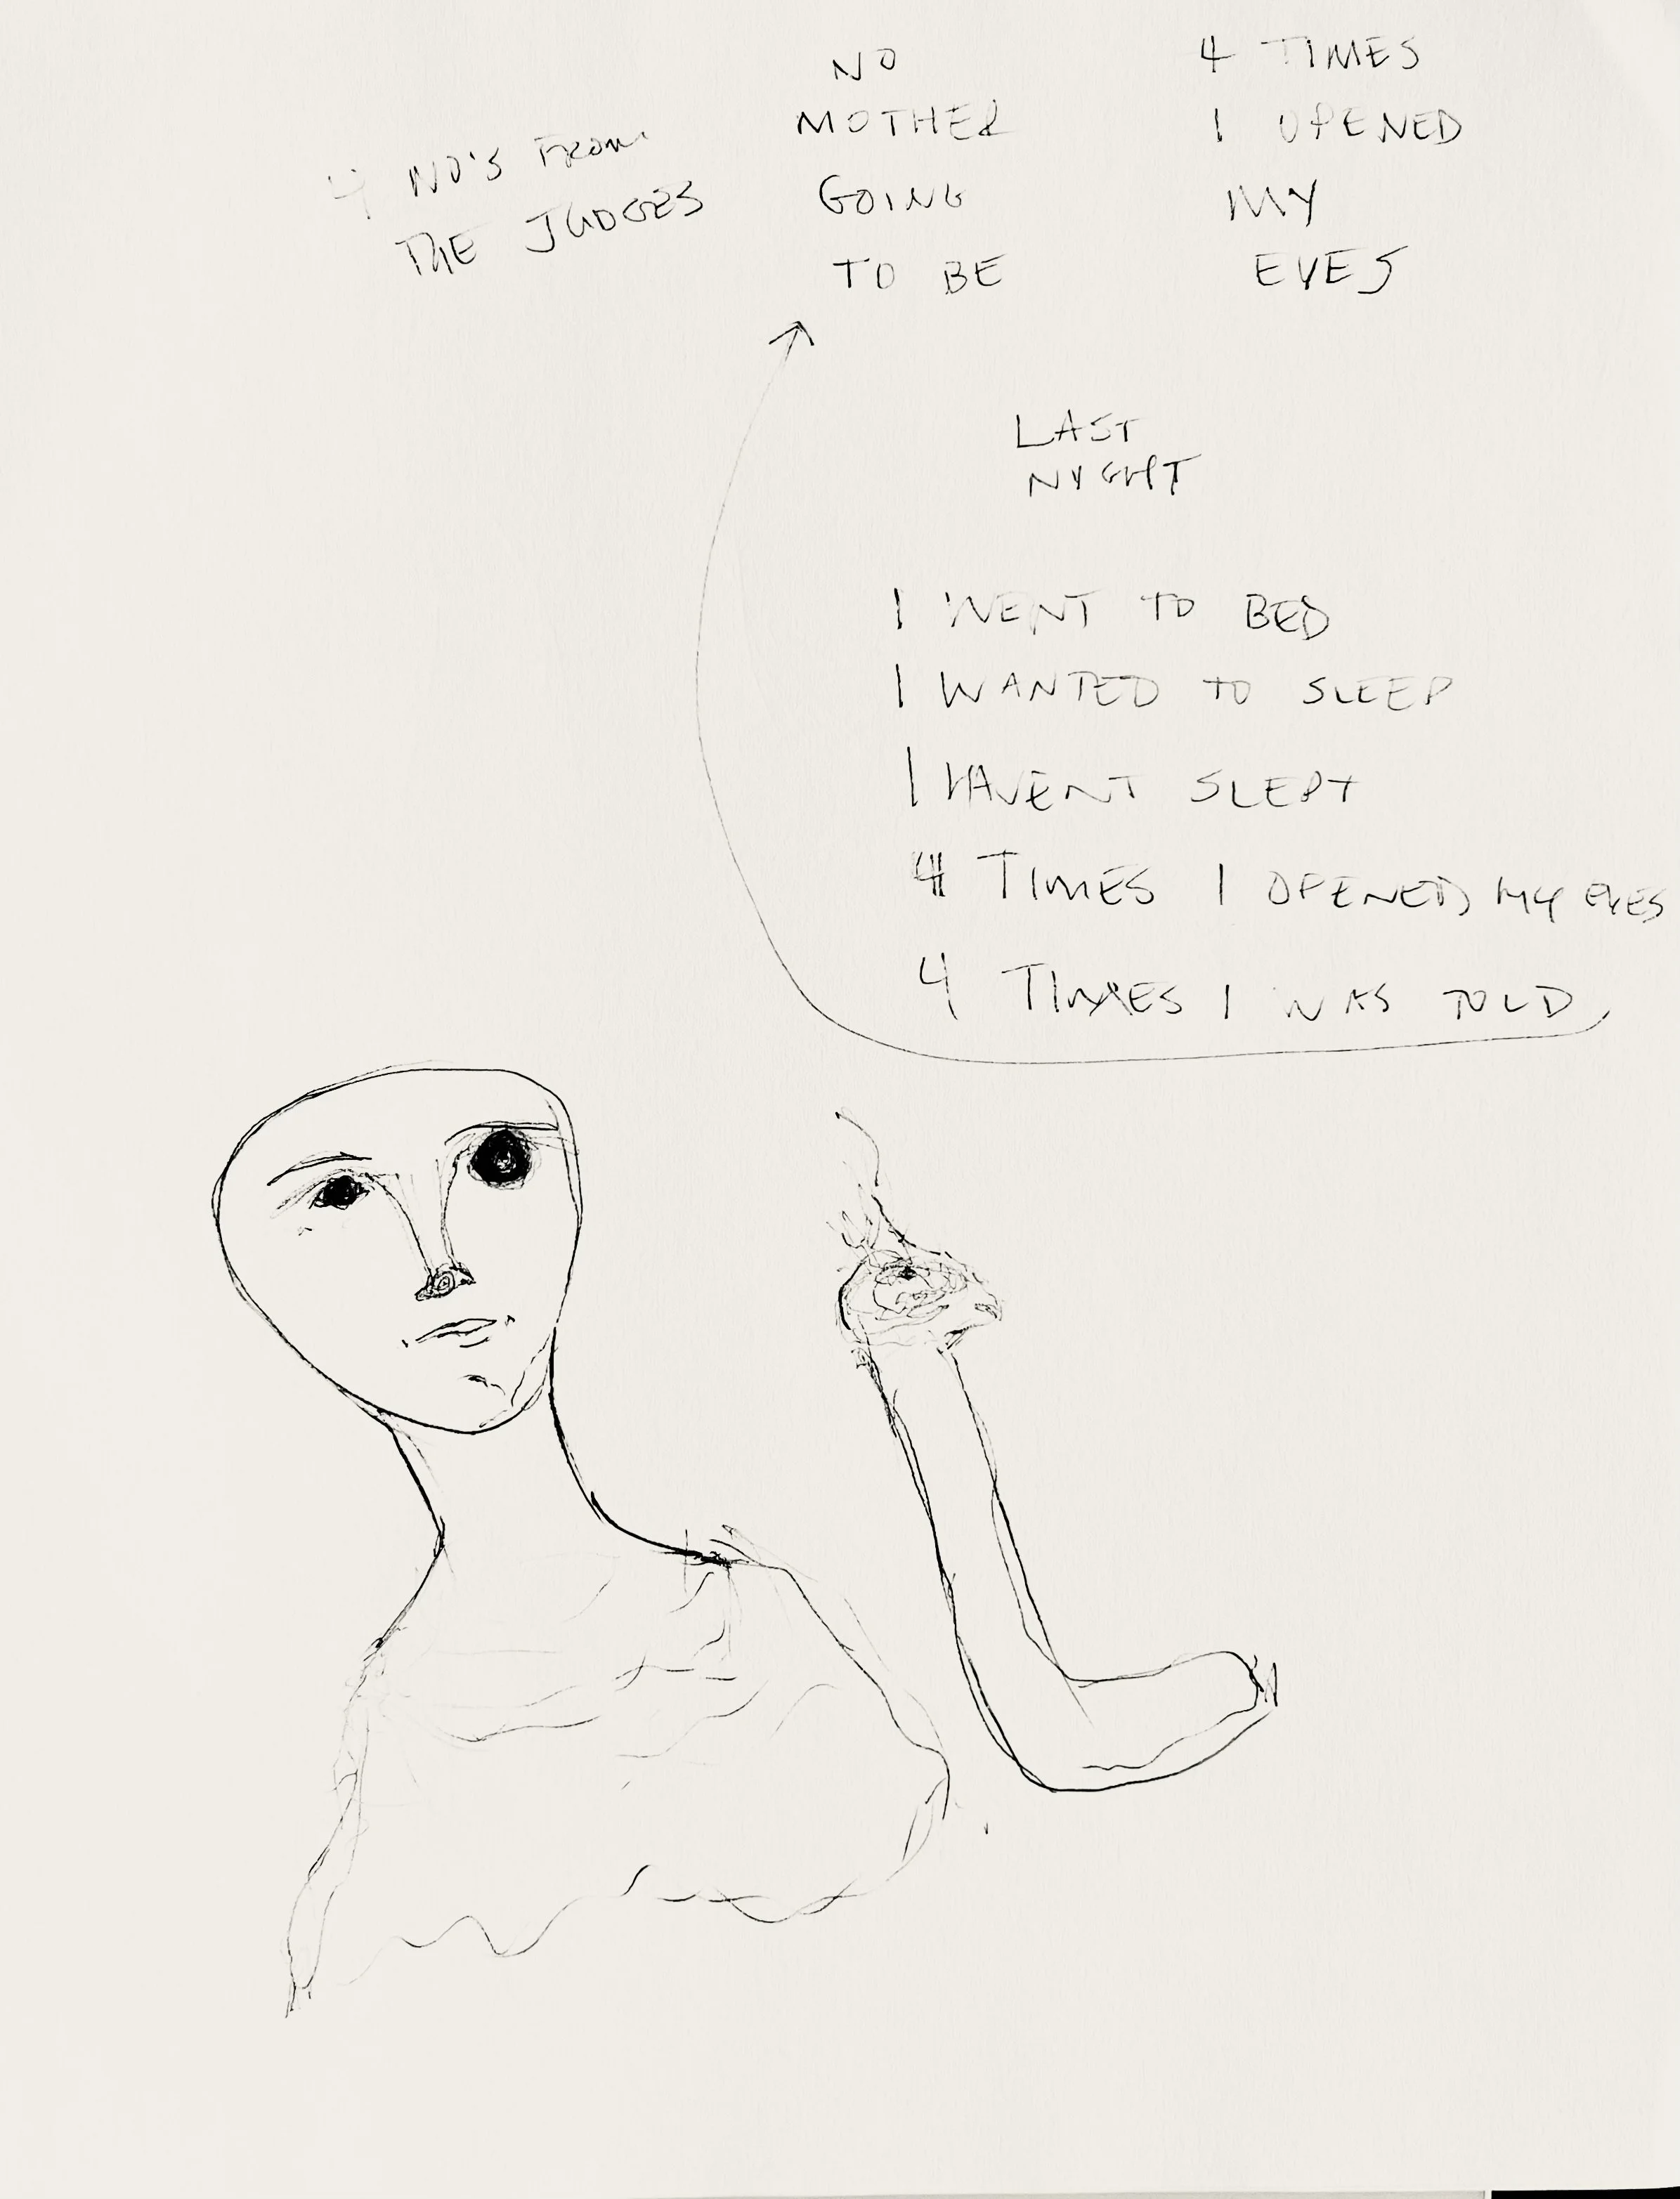 4 NO'S FROM
THE JUDGES
NO
MOTHER
GOING
TO BE
4 TIMES
I OPENED
MY
EYES
LAST
NIGHT
I WENT TO BED
I WANTED TO SLEEP
I HAVENT SLEPT
4 TIMES I OPENED MY EYES
4 TIMES I WAS TOLD